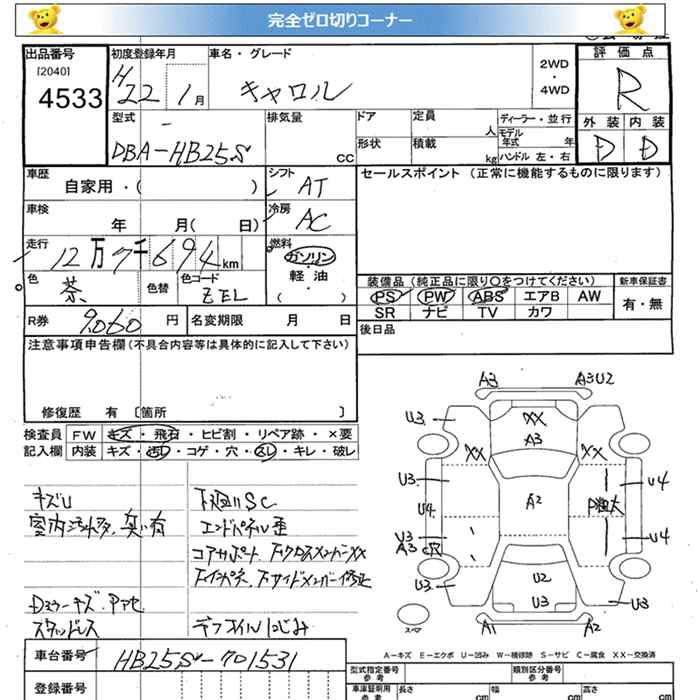 完全ゼロ切りコーナー
出品番号
[2040]
4533
初度登録年月
H22 1月
車名・グレード
キャロル
2WD
・
4WD
評価点
R
外装 内装
D D
型式
DBA-HB25S
排気量
CC
ドア
形状
定員
人
積載
kg
ディーラー・並行
モデル年式 年
ハンドル 左・右
車歴
自家用・( )
シフト
AT
セールスポイント (正常に機能するものに限ります)
車検
年 月( 日)
冷房
AC
走行
12万7千694km
燃料
ガソリン
・
軽・油
( )
色
茶
色替
色コード
ZEL
装備品 (純正品に限り○をつけてください)
新車保証書
PS PW ABS エアB AW
有・無
SR ナビ TV カワ
R券 9060 円
名変期限 月 日
後日品
注意事項申告欄 (不具合内容等は具体的に記入して下さい)
修復歴 有 〔箇所 〕
検査員 FW キズ・飛石・ヒビ割・リペア跡・×要
記入欄 内装 キズ・汚レ・コゲ・穴・スレ・キレ・破レ
キズU
下廻りSC
室内汚れ多、臭い有
エンドパネル歪
コアサポート、下クロスメンバーXX
下インパネ、下サイドメンバー修正
Dミラーキズ、Pァセ
スタッドレス
デフオイルにじみ
A3
A3 U2
U3
XX
U3
A3
XX
XX
U3
U4
A2
P粗大
U4
U4
U3
A3 C穴
U4
U3
U2
U3
U3
A1
A2
スペア
A－キズ E－エクボ U－凹み W－補修跡 S－サビ C－腐食 XX－交換済
車台番号
HB25S-701531
登録番号
型式指定番号
参考
類別区分番号
参考
車庫証明用
参考
長さ cm
幅 cm
高さ cm